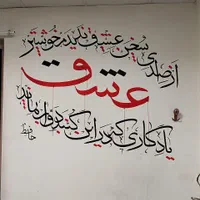 از صدای سخن عشق ندیدم خوشتر
عشق
یادگاری که در این گنبد دوار بماند
حافظ